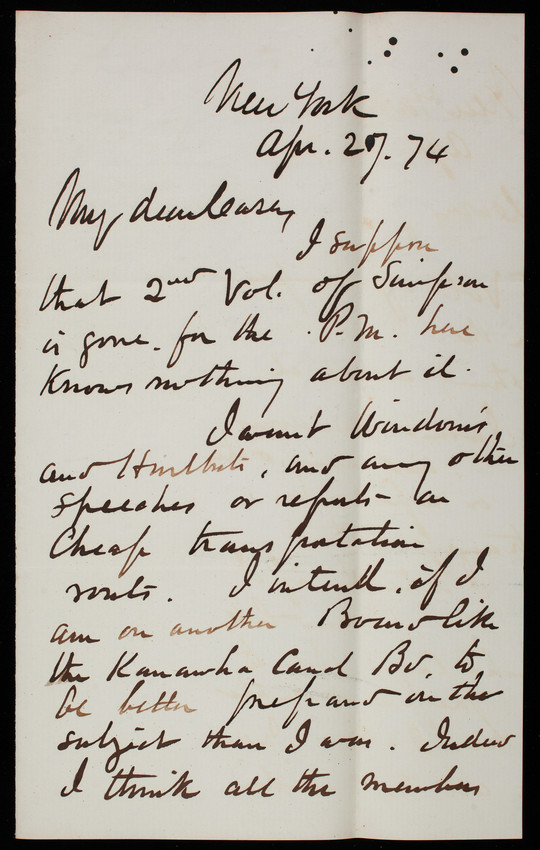 New York
Apr. 27. 74
My dear Casey,
I suppose
that 2nd Vol. of Simpson
is gone. for the P.M. here
Knows nothing about it.
I want Windom's
and Hurlbuts, and any other
speeches or reports on
Cheap transportation
routs. I intend, if I
am on another Board like
the Kanawha Canal Bd. to
be better prepared on the
subject than I was. Indeed
I think all the members